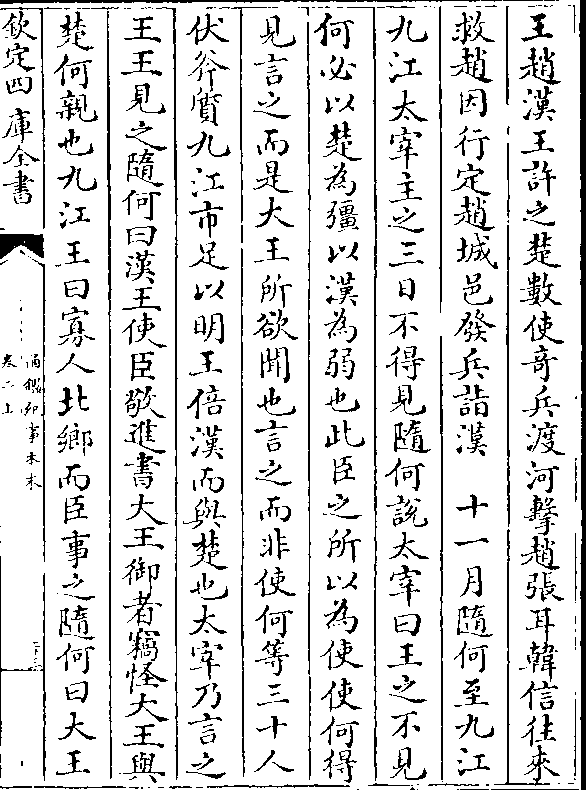 王趙漢王許之楚數使奇兵渡河擊趙張耳韓信往來
救趙因行定趙城邑發兵詣漢　十一月隨何至九江
九江太宰主之三日不得見隨何說太宰曰王之不見
何必以楚為彊以漢為弱也此臣之所以為使使何得
見言之而是大王所欲聞也言之而非使何等三十人
伏斧質九江市足以明王倍漢而與楚也太宰乃言之
王王見之隨何曰漢王使臣敬進書大王御者竊怪大王與
楚何親也九江王曰寡人北鄉而臣事之隨何曰大王
欽定四庫全書
通鑑紀事本末
卷二上